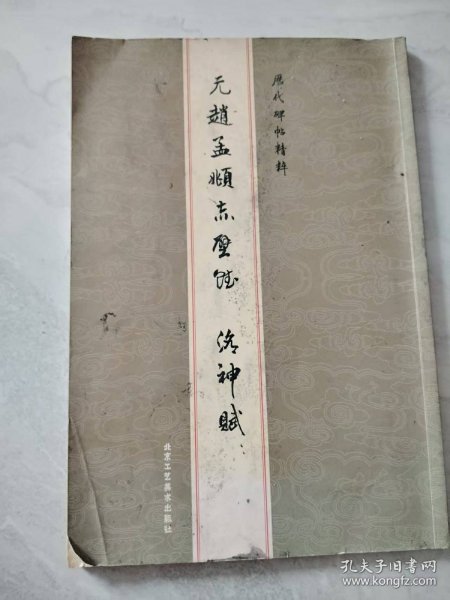 歷代碑帖精粹
元趙孟頫赤壁賦 洛神賦
北京工艺美术出版社
孔夫子旧书网
www.kongfz.com